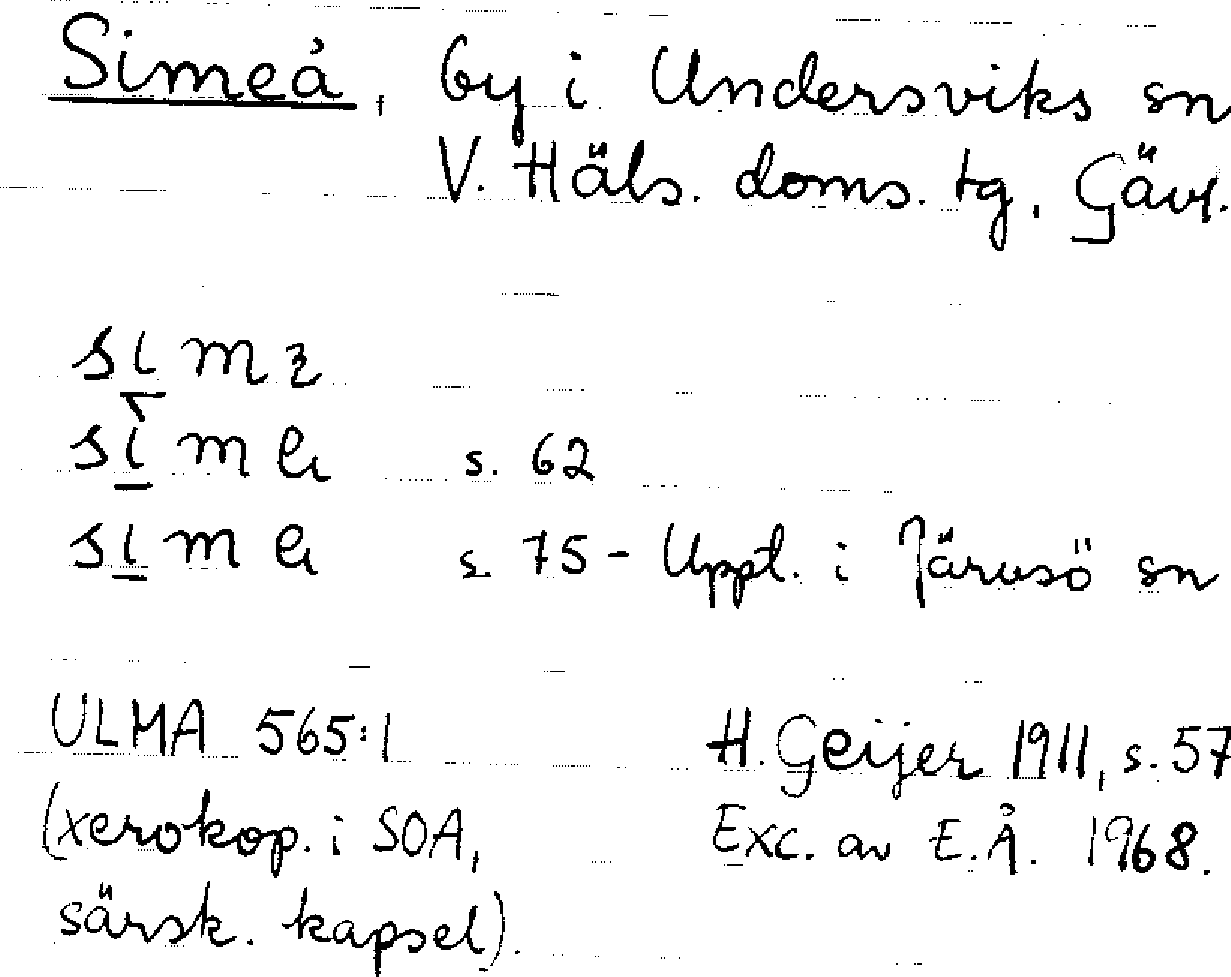 Simeå, by i Undersviks sn
V. Häls. doms. tg, Gävl.
s. 62
s. 75 - Uppt. i Järvsö sn
ULMA 565:1 H. Geijer 1911, s. 57
(xerokop. i SOA, Exc. av E.Å. 1968.
särsk. kapsel).